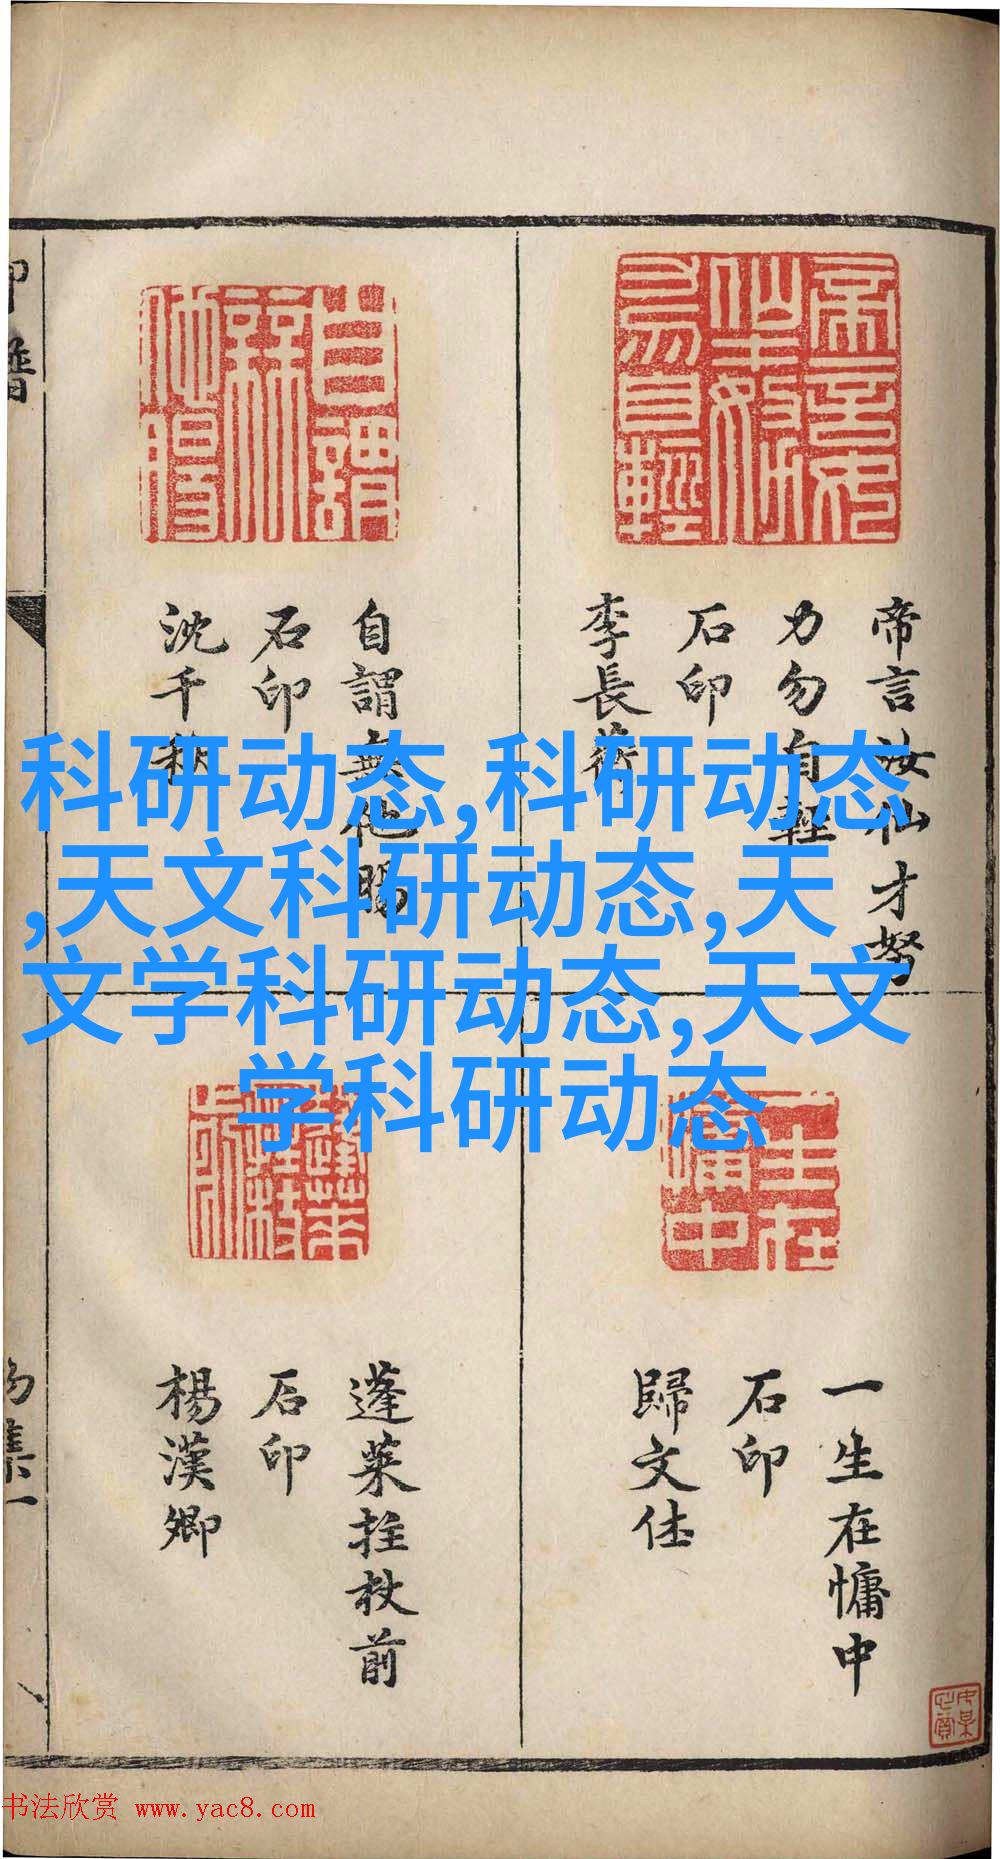 帝言汝仙才努
力勿自輕
石印
李長蘅
自謂無他腸
石印
沈千秋
科研动态,科研动态
,天文科研动态,天
文学科研动态,天文
学科研动态
一生在慵中
石印
歸文休
蓬萊拄杖前
石印
楊漢卿
书法欣赏 www.yac8.com